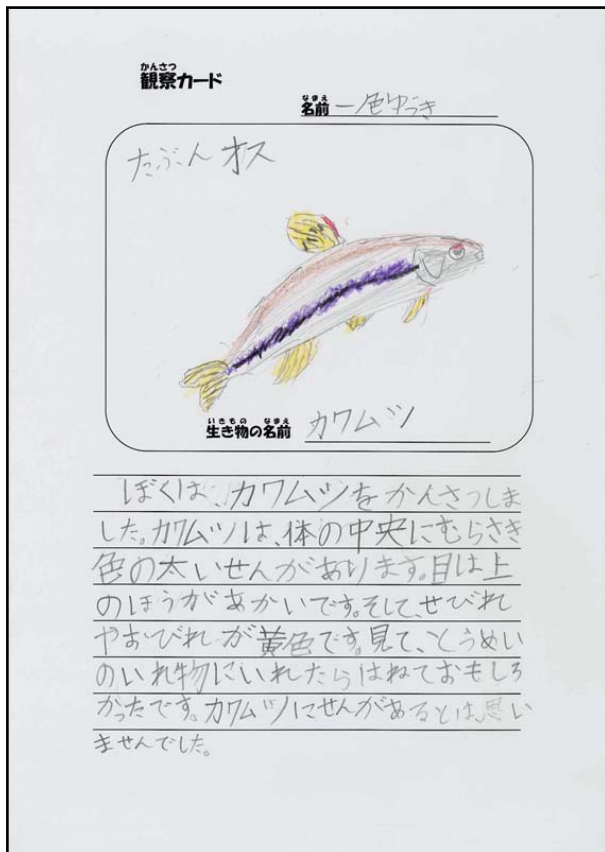 かんさつ
観察カード
なまえ
名前 一色ゆうき
たぶん オス
いきもの なまえ
生き物の名前 カワムツ
ぼくは、カワムツをかんさつしま
した。カワムツは、体の中央にむらさき
色の太いせんがあります。目は上
のほうがあかいです。そして、せびれ
やおびれが黄色です。見て、とうめい
のいれ物にいれたらはねておもしろ
かったです。カワムツにせんがあるとは、思い
ませんでした。